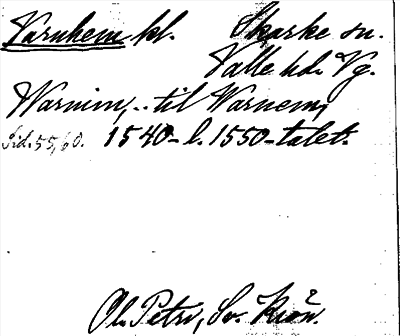 Varnhem kl. Skarke sn.
Valle hd. Vg.
Warnim, .. til Warnem,
Sid. 55, 60. 1540- l. 1550-talet.
Ol. Petri, Sv. Krön.